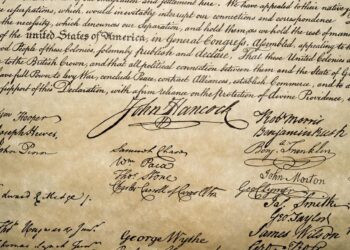 settlement here. We have appealed to their native
usurpations, which would inevitably interrupt our connections and correspondence
necessity, which denounces our Separation, and hold them, as we hold the rest of
the united States of America, in General Congress, Assembled, appealing to the
good People of these Colonies, solemnly publish and declare, That these United Colonies
to the British Crown, and that all political connection between them and the State of
have full Power to levy War, conclude Peace, contract Alliances, establish Commerce, and to
support of this Declaration, with a firm reliance on the protection of divine Providence,
John Hancock
Hooper
Joseph Hewes,
John Penn
Samuel Chase
Wm Paca
Thos Stone
Charles Carroll of Carrollton
Robt Morris
Benjamin Rush
Benj Franklin
John Morton
Geo Clymer
Jas Smith
Geo Taylor
James Wilson
Edward Rutledge
Thos Heyward Junr
Thomas Lynch Junr
George Wythe